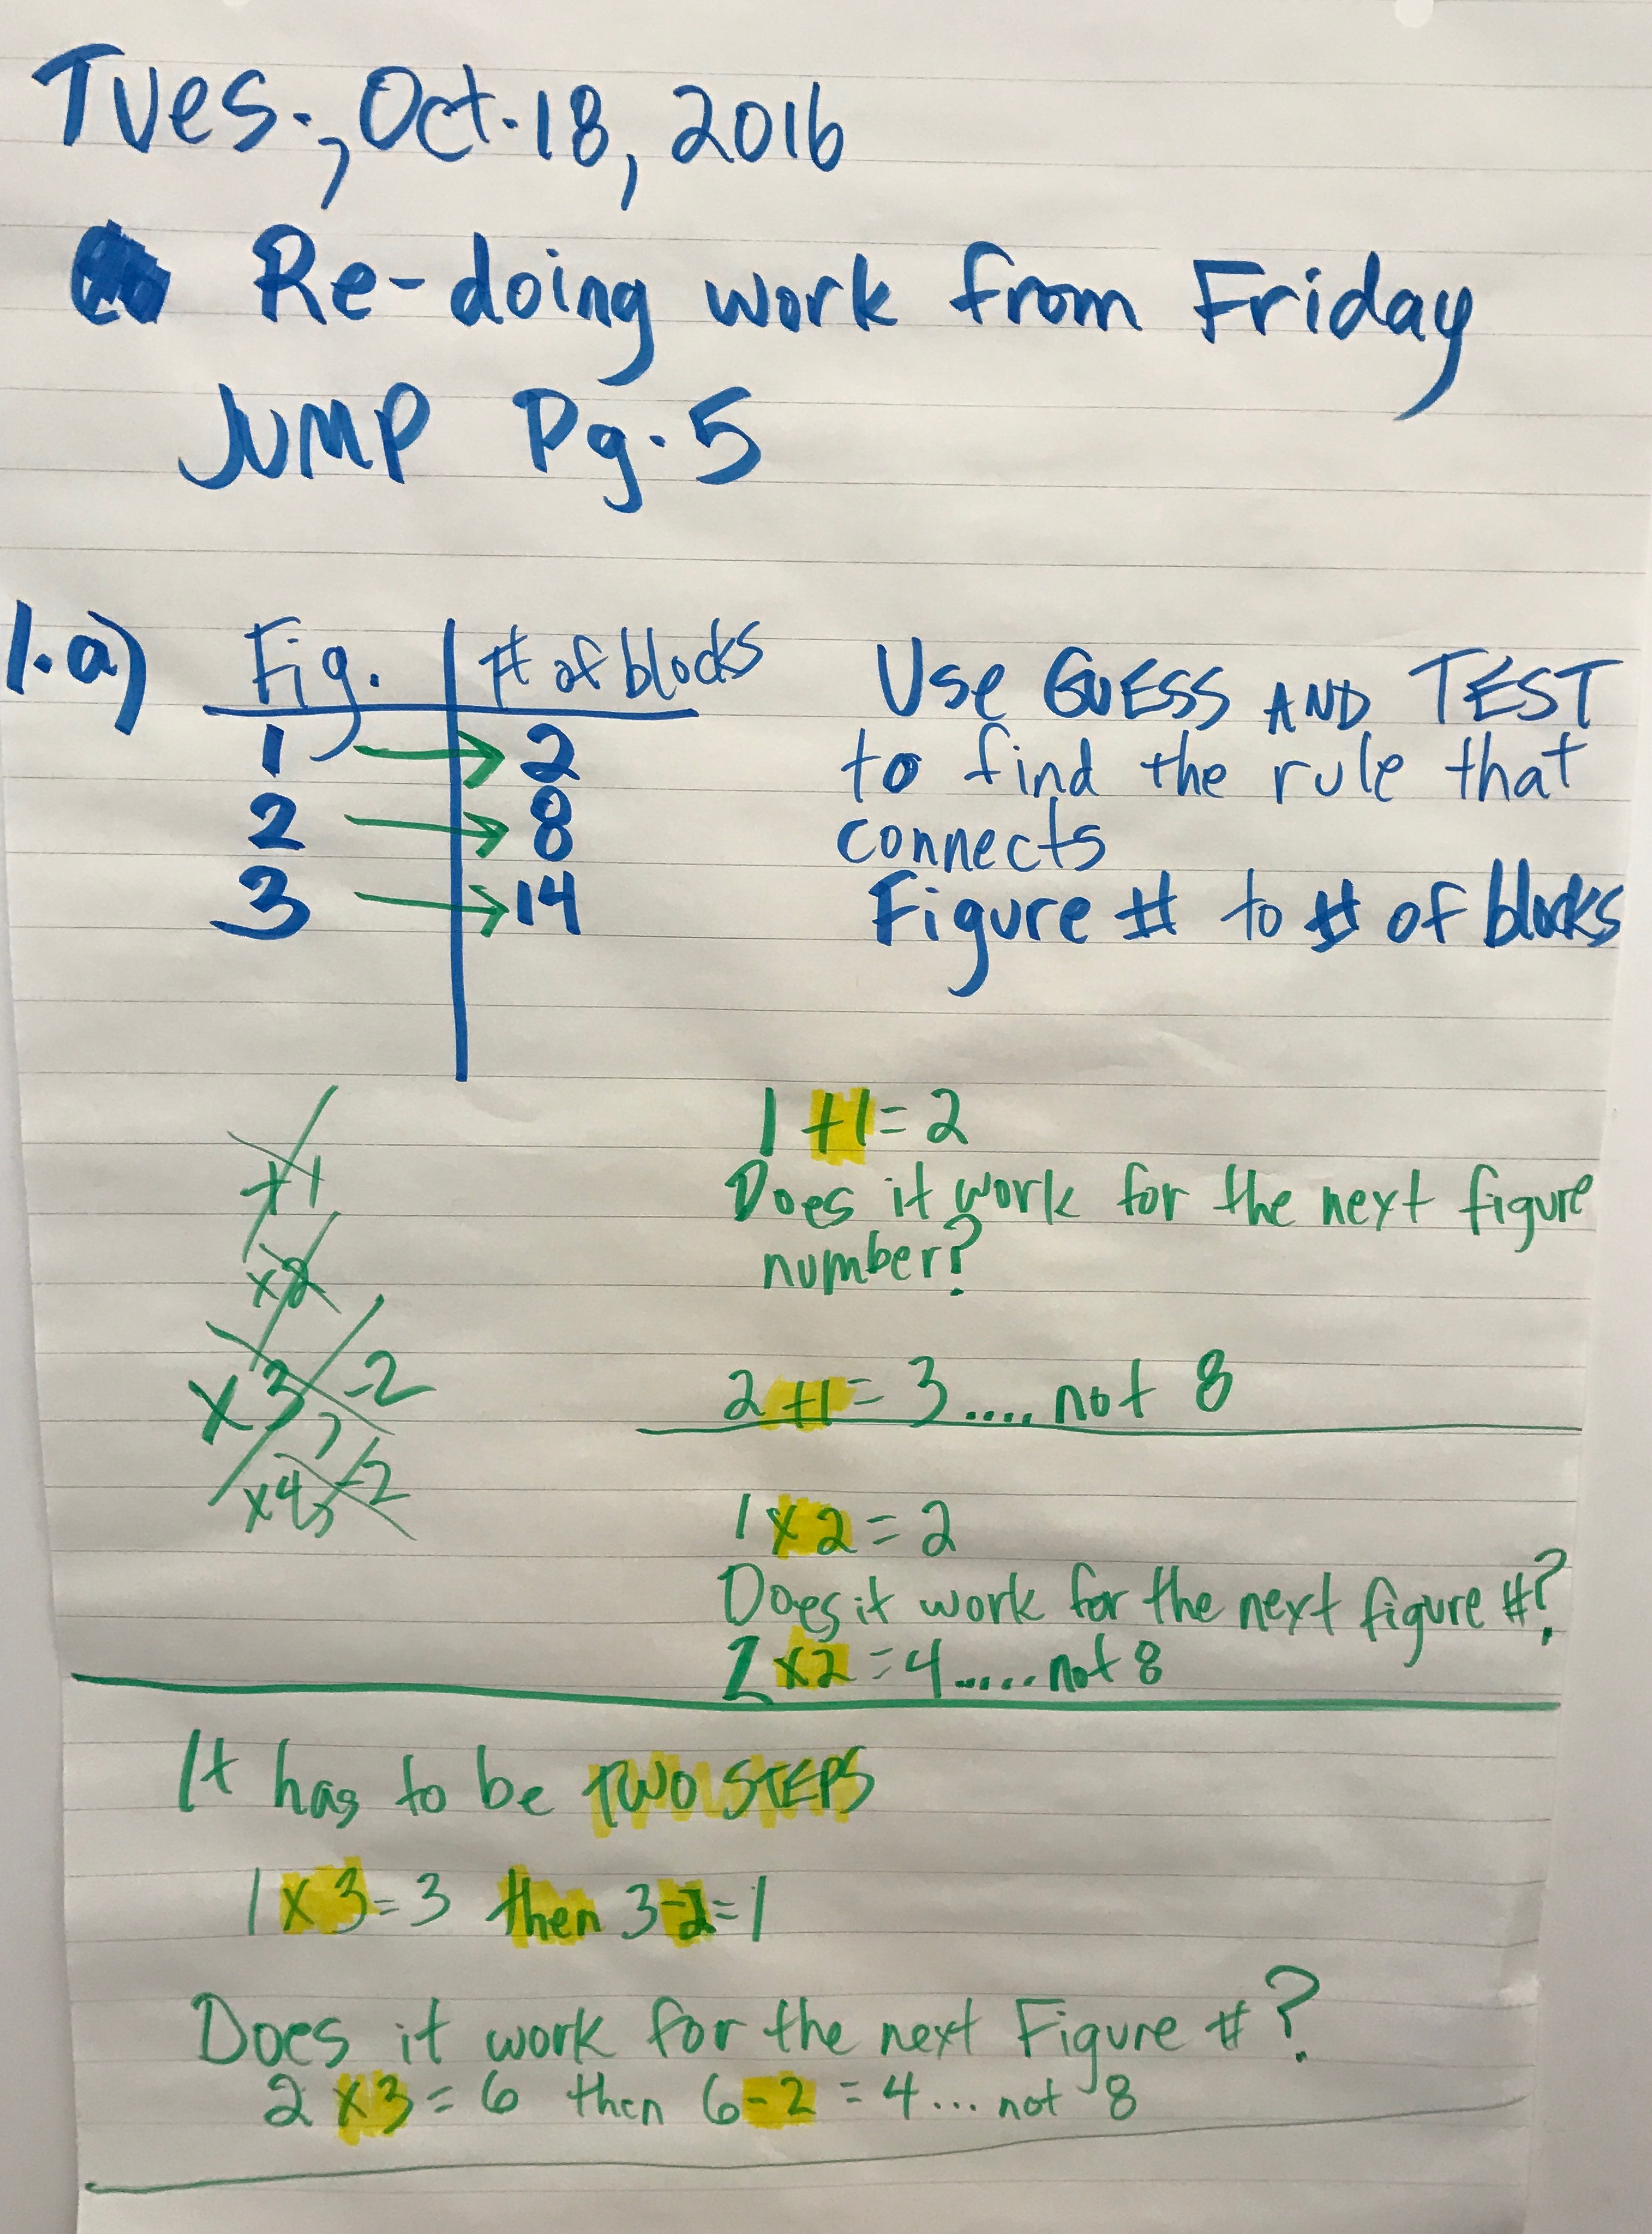 Tues., Oct. 18, 2016
Re-doing work from Friday
JUMP Pg. 5
1. a) Fig. # of blocks
1 → 2
2 → 8
3 → 14
Use GUESS AND TEST
to find the rule that
connects
Figure # to # of blocks
+1
x2
x3, -2
x4, -2
1 +1 = 2
Does it work for the next figure
number?
2 +1 = 3 .... not 8
1 x 2 = 2
Does it work for the next figure #?
2 x2 = 4 ..... not 8
It has to be TWO STEPS
1 x 3 = 3 then 3-2=1
Does it work for the next Figure #?
2 x3 = 6 then 6-2 = 4 ... not 8